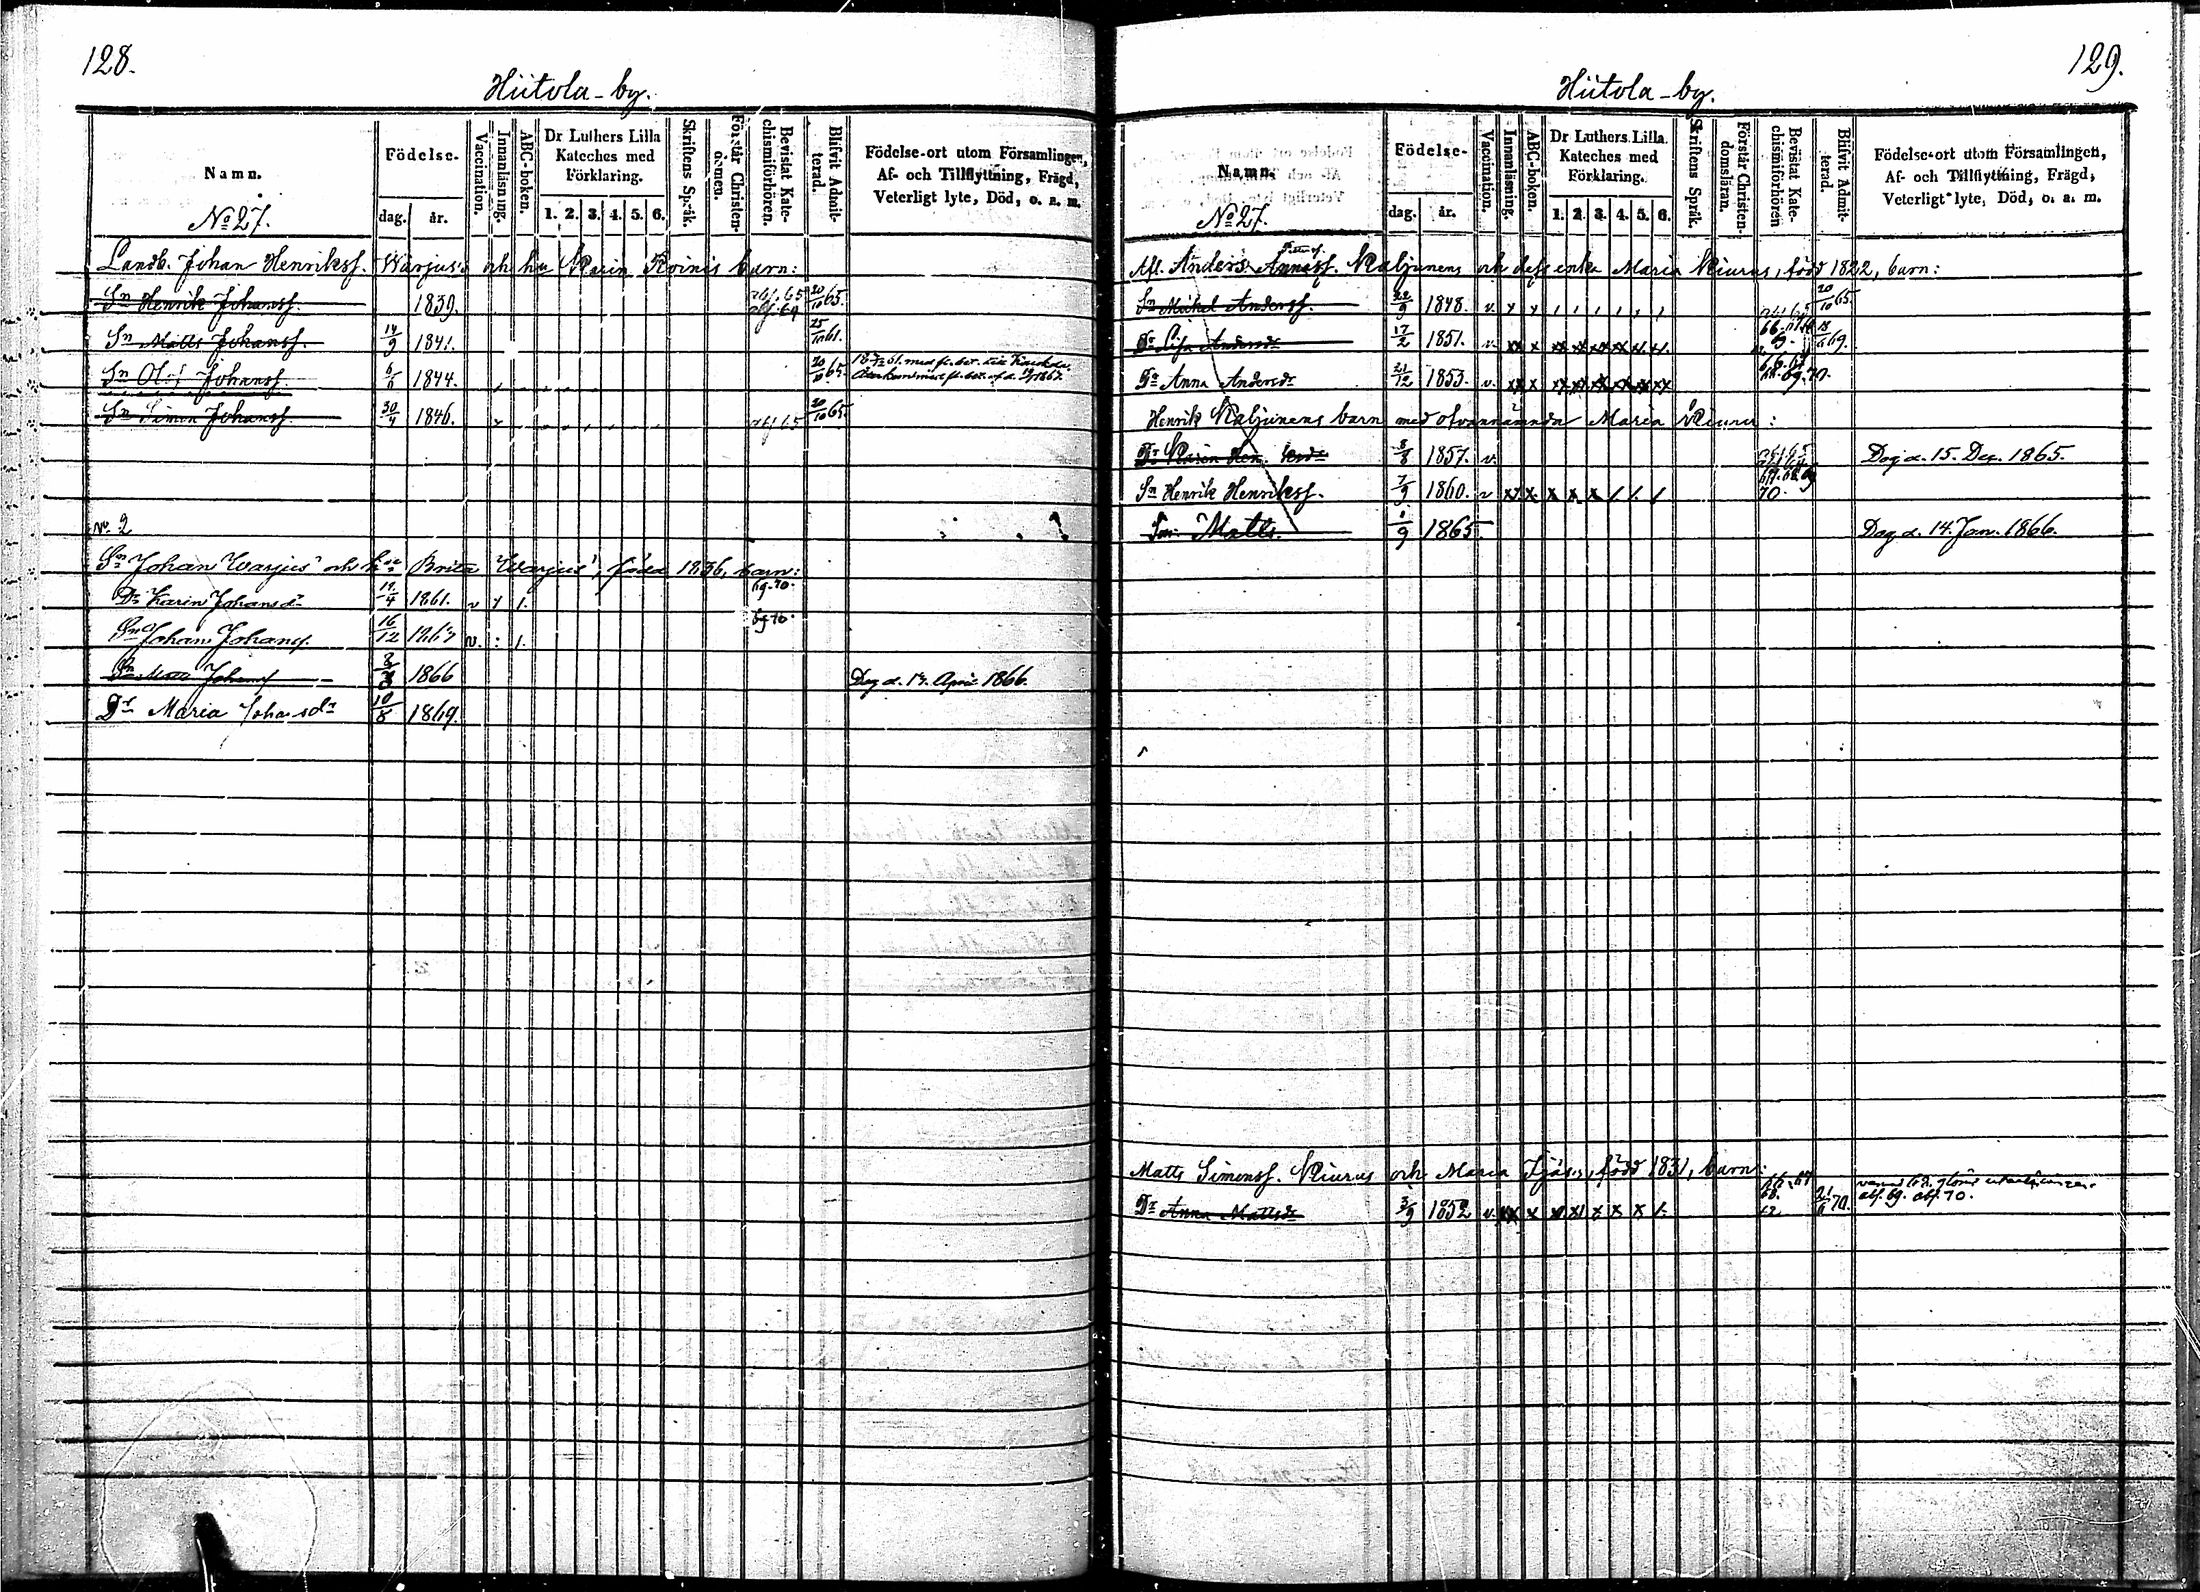 128.
Hiitola-by.
Namn.
No 27.
Födelse-
dag.
år.
Vaccination.
Innanläsning.
ABC-boken.
Dr Luthers Lilla
Kateches med
Förklaring.
1. 2. 3. 4. 5. 6.
Skriftens Språk.
Förstår Christen-
domen.
Bevistat Kate-
chismiförhören.
Blifvit Admit-
terad.
Födelse-ort utom Församlingen,
Af- och Tillflyttning, Frägd,
Veterligt lyte, Död, o. a. m.
Landb. Johan Henrikss. Warjus' och hu Karin Roinis barn:
Sn Henrik Johanss. 1839. abs. 65 abs. 69 20/10 65.
Sn Matts Johanss. 14/9 1841. 25/10 61.
Sn Olof Johanss. 6/6 1844.
Sn Simon Johanss. 30/4 1846. abs 65 20/10 65.
No. 2
Sn Johan Warjus' och hu Brita Warjus', född 1836, barn:
Dr Karin Johansdr 1861. v 69.70.
Sn Johan Johanss. 16/12 1863 v. 69 70.
Sn Matts Johanss 1866 Dog d. Apr. 1866.
Dr Maria Johansdr 10/8 1869.
129.
Hiitola-by.
Namn.
No 27.
Födelse-
dag.
år.
Vaccination.
Innanläsning.
ABC-boken.
Dr Luthers Lilla
Kateches med
Förklaring.
1. 2. 3. 4. 5. 6.
Skriftens Språk.
Förstår Christen-
domslären.
Bevistat Kate-
chismiförhören
Blifvit Admit-
terad.
Födelse-ort utom Församlingen,
Af- och Tillflyttning, Frägd,
Veterligt lyte, Död, o. a. m.
Afl. Anders Kaljunens och dess enka Maria Kiurus, född 1822, barn:
Sn Mickel Anderss. 22/9 1848. v. 20/10 65.
Dr Lisa Andersdr 17/2 1851. v. 69.
Dr Anna Andersdr 21/12 1853. v. 69.70.
Henrik Kaljunens barn med ofvannämnda Maria Kiurus:
Dr Karin Hen 8/8 1857. v. Dog d. 15. Dec. 1865.
Sn Henrik Henrikss. 7/9 1860. v 70.
Sn Matts. 1/9 1865. Dog d. 14. Jan. 1866.
Matts Simonss. Kiurus och Maria född 1831, barn:
Dr Anna Mattsdr 3/9 1852 v. 68. 70. abs. 69. abs. 70.